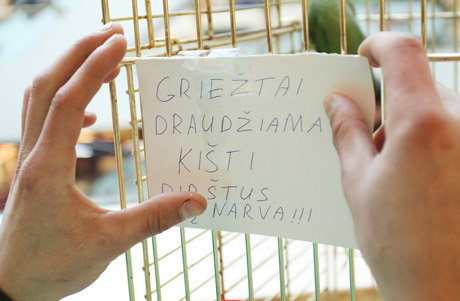 GRIEŽTAI
DRAUDŽIAMA
KIŠTI
PIRŠTUS
Į NARVĄ!!!